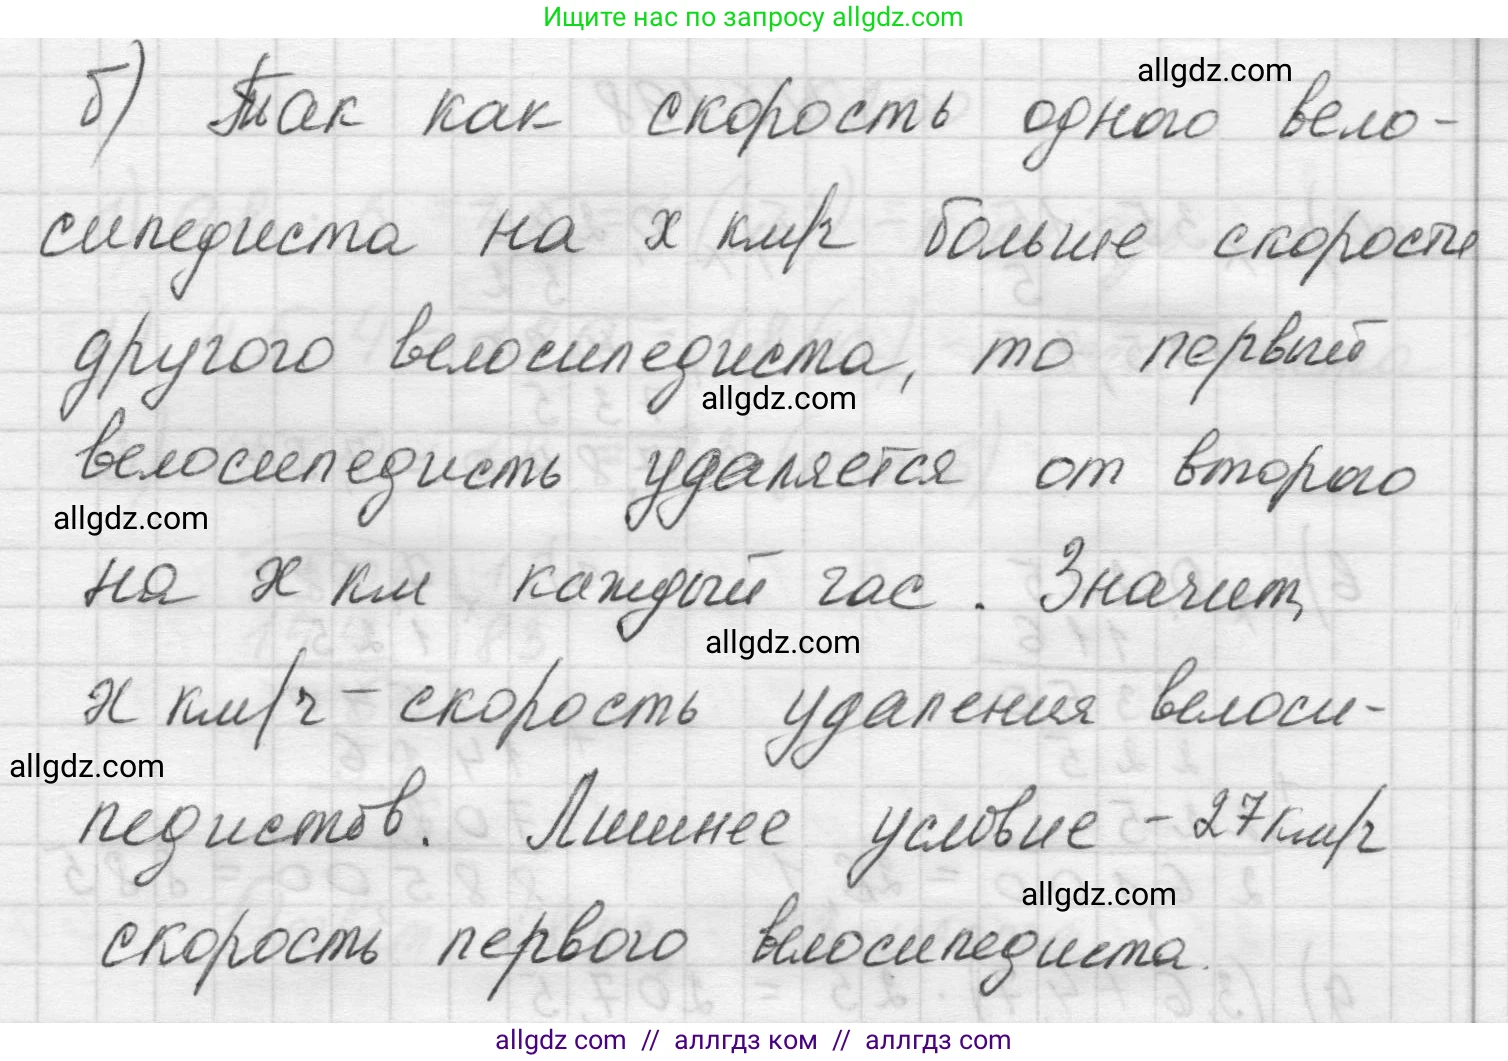 Ищите нас по запросу allgdz.com
allgdz.com
б) Так как скорость одного вело-
сипедиста на х км/ч больше скорости
другого велосипедиста, то первый
allgdz.com
велосипедисть удаляется от второго
allgdz.com
на х км каждый час. Значит,
allgdz.com
х км/ч - скорость удаления велоси-
allgdz.com
педистов. Лишнее условие - 27 км/ч
allgdz.com
скорость первого велосипедиста.
allgdz.com // аллгдз ком // аллгдз.com